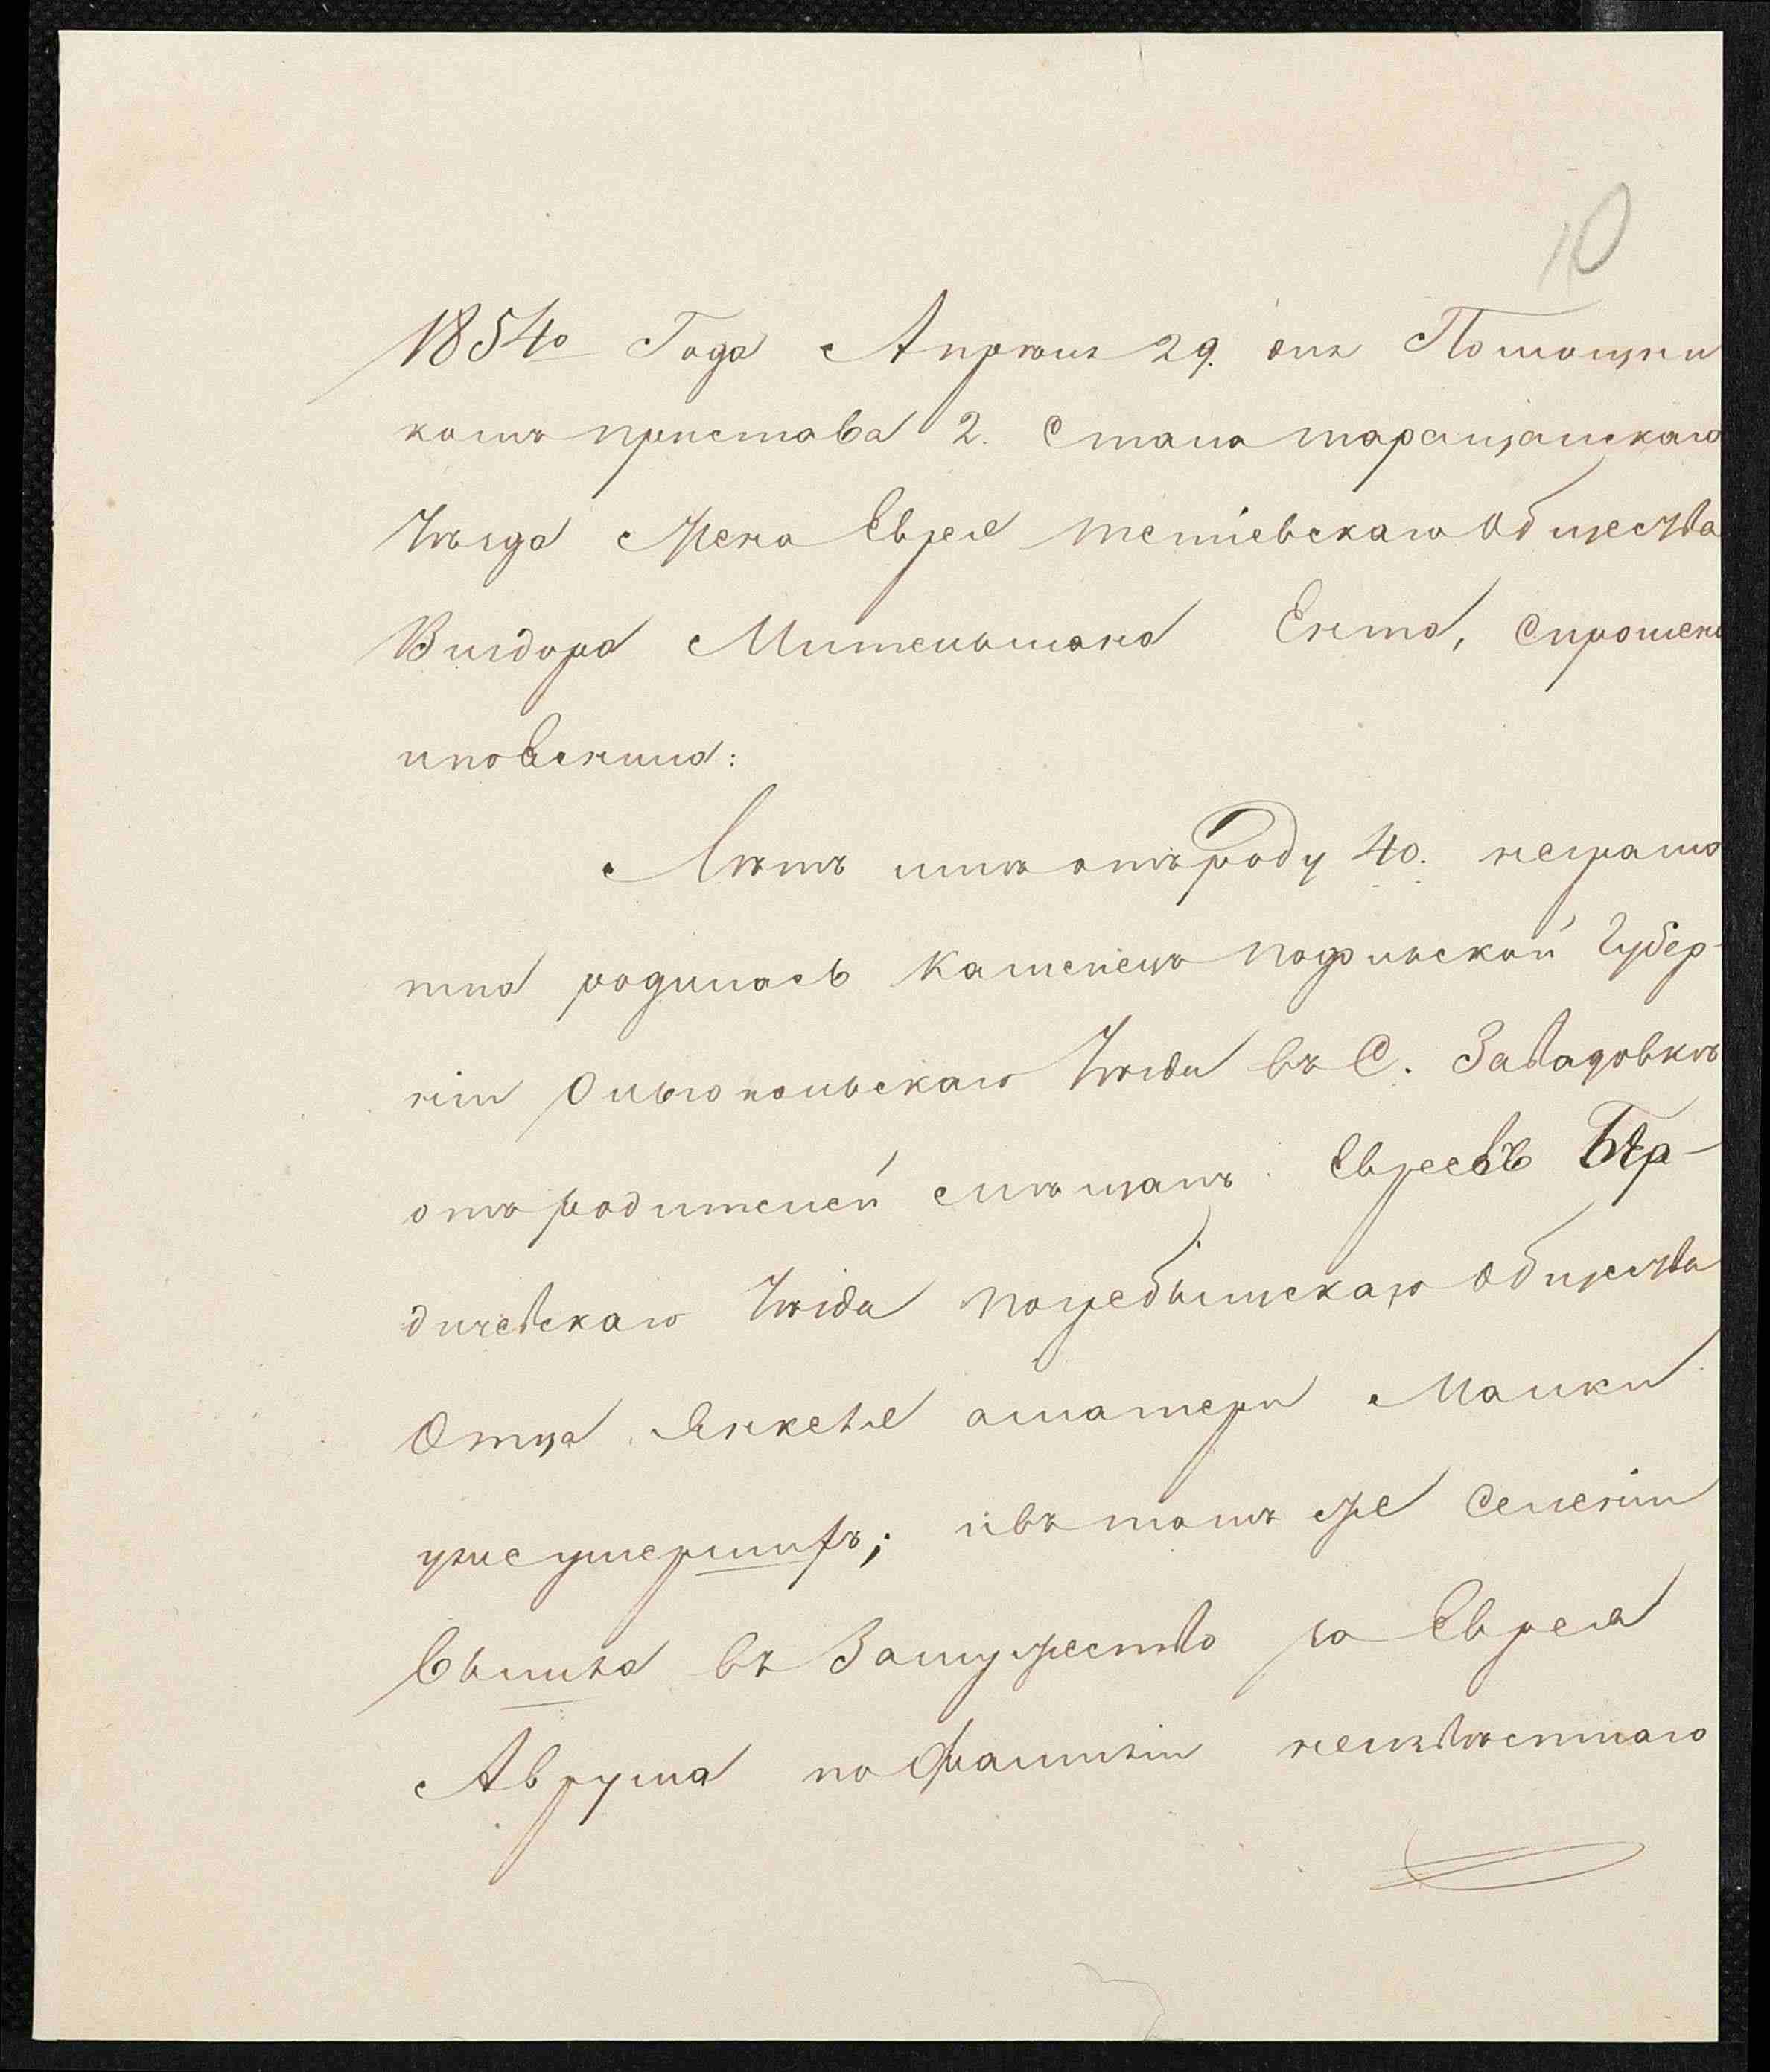 10
1854го Года Апреля 29. дня Помощни
комъ пристава 2. Стана таращанскаго
Уѣзда жена Еврея тетіевскаго общества
Вигдора Мительмана Ента, спрошена
и показала:
Лѣтъ мнѣ отъ роду 40. неграмо
тна родилась Каменецъ подольской Губер-
ніи Ольгопольскаго Уѣзда въ С. Завадовкѣ
отъ родителей мѣщанъ Евреевъ Бер-
дичевскаго Уѣзда погребыщскаго общества
Отца Янкеля а матери Малки
уже умершихъ; и въ томъ же Селеніи
вышла въ Замужество за Еврея
Аврума по фамиліи неизвѣстнаго